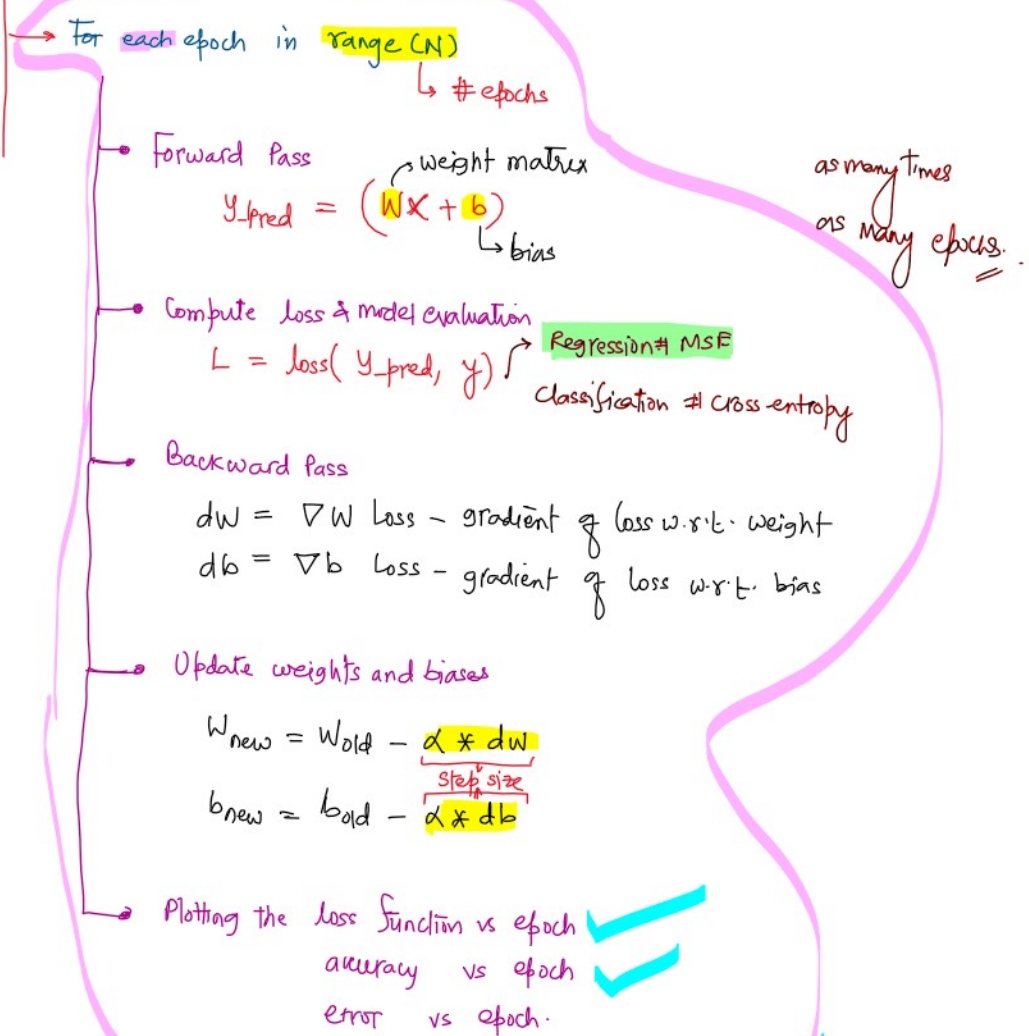 For each epoch in range (N)
↳ # epochs
Forward Pass
weight matrix
y_pred = (WX + b)
↳ bias
as many times
as many epochs.
Compute loss & model evaluation
L = loss( y_pred, y)
Regression # MSE
Classification # cross entropy
Backward Pass
dw = ∇W Loss - gradient of loss w.r.t. weight
db = ∇b Loss - gradient of loss w.r.t. bias
Update weights and biases
Wnew = Wold - α * dw
step size
bnew = bold - α * db
Plotting the loss function vs epoch
accuracy vs epoch
error vs epoch.